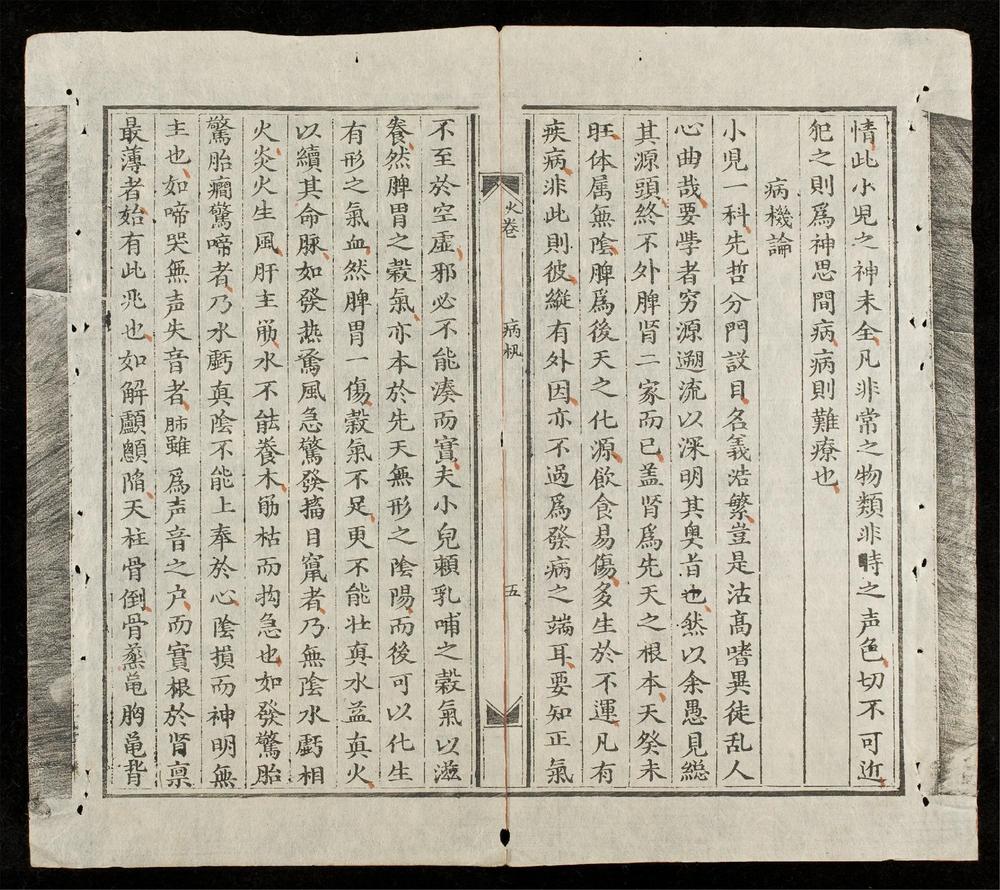 情此小児之神未全凡非常之物類非時之声色切不可近
犯之則爲神思間病病則難療也
病機論
小児一科先哲分門設目名義浩繁豈是沽髙嗜異徒乱人
心曲哉要斈者穷源遡流以深明其奥旨也然以余愚見総
其源頭終不外脾肾二家而已盖肾爲先天之根本天癸未
旺体属無陰脾爲後天之化源飲食易傷多生於不運凡有
疾病非此則彼縱有外因亦不過爲發病之端耳要知正氣
火卷
病机
五
不至於空虛邪必不能湊而實夫小兒頼乳哺之穀氣以滋
養然脾胃之穀氣亦本於先天無形之陰陽而後可以化生
有形之氣血然脾胃一傷穀氣不足更不能壮真水益真火
以續其命脉如發热驚風急驚發搐目竄者乃無陰水虧相
火炎火生風肝主筋水不能養木筋枯而拘急也如發驚胎
驚胎癎驚啼者乃水虧真陰不能上奉於心陰損而神明無
主也如啼哭無声失音者肺雖爲声音之户而實根於肾禀
最薄者始有此兆也如解顱顖陷天柱骨倒骨蒸亀胸亀背